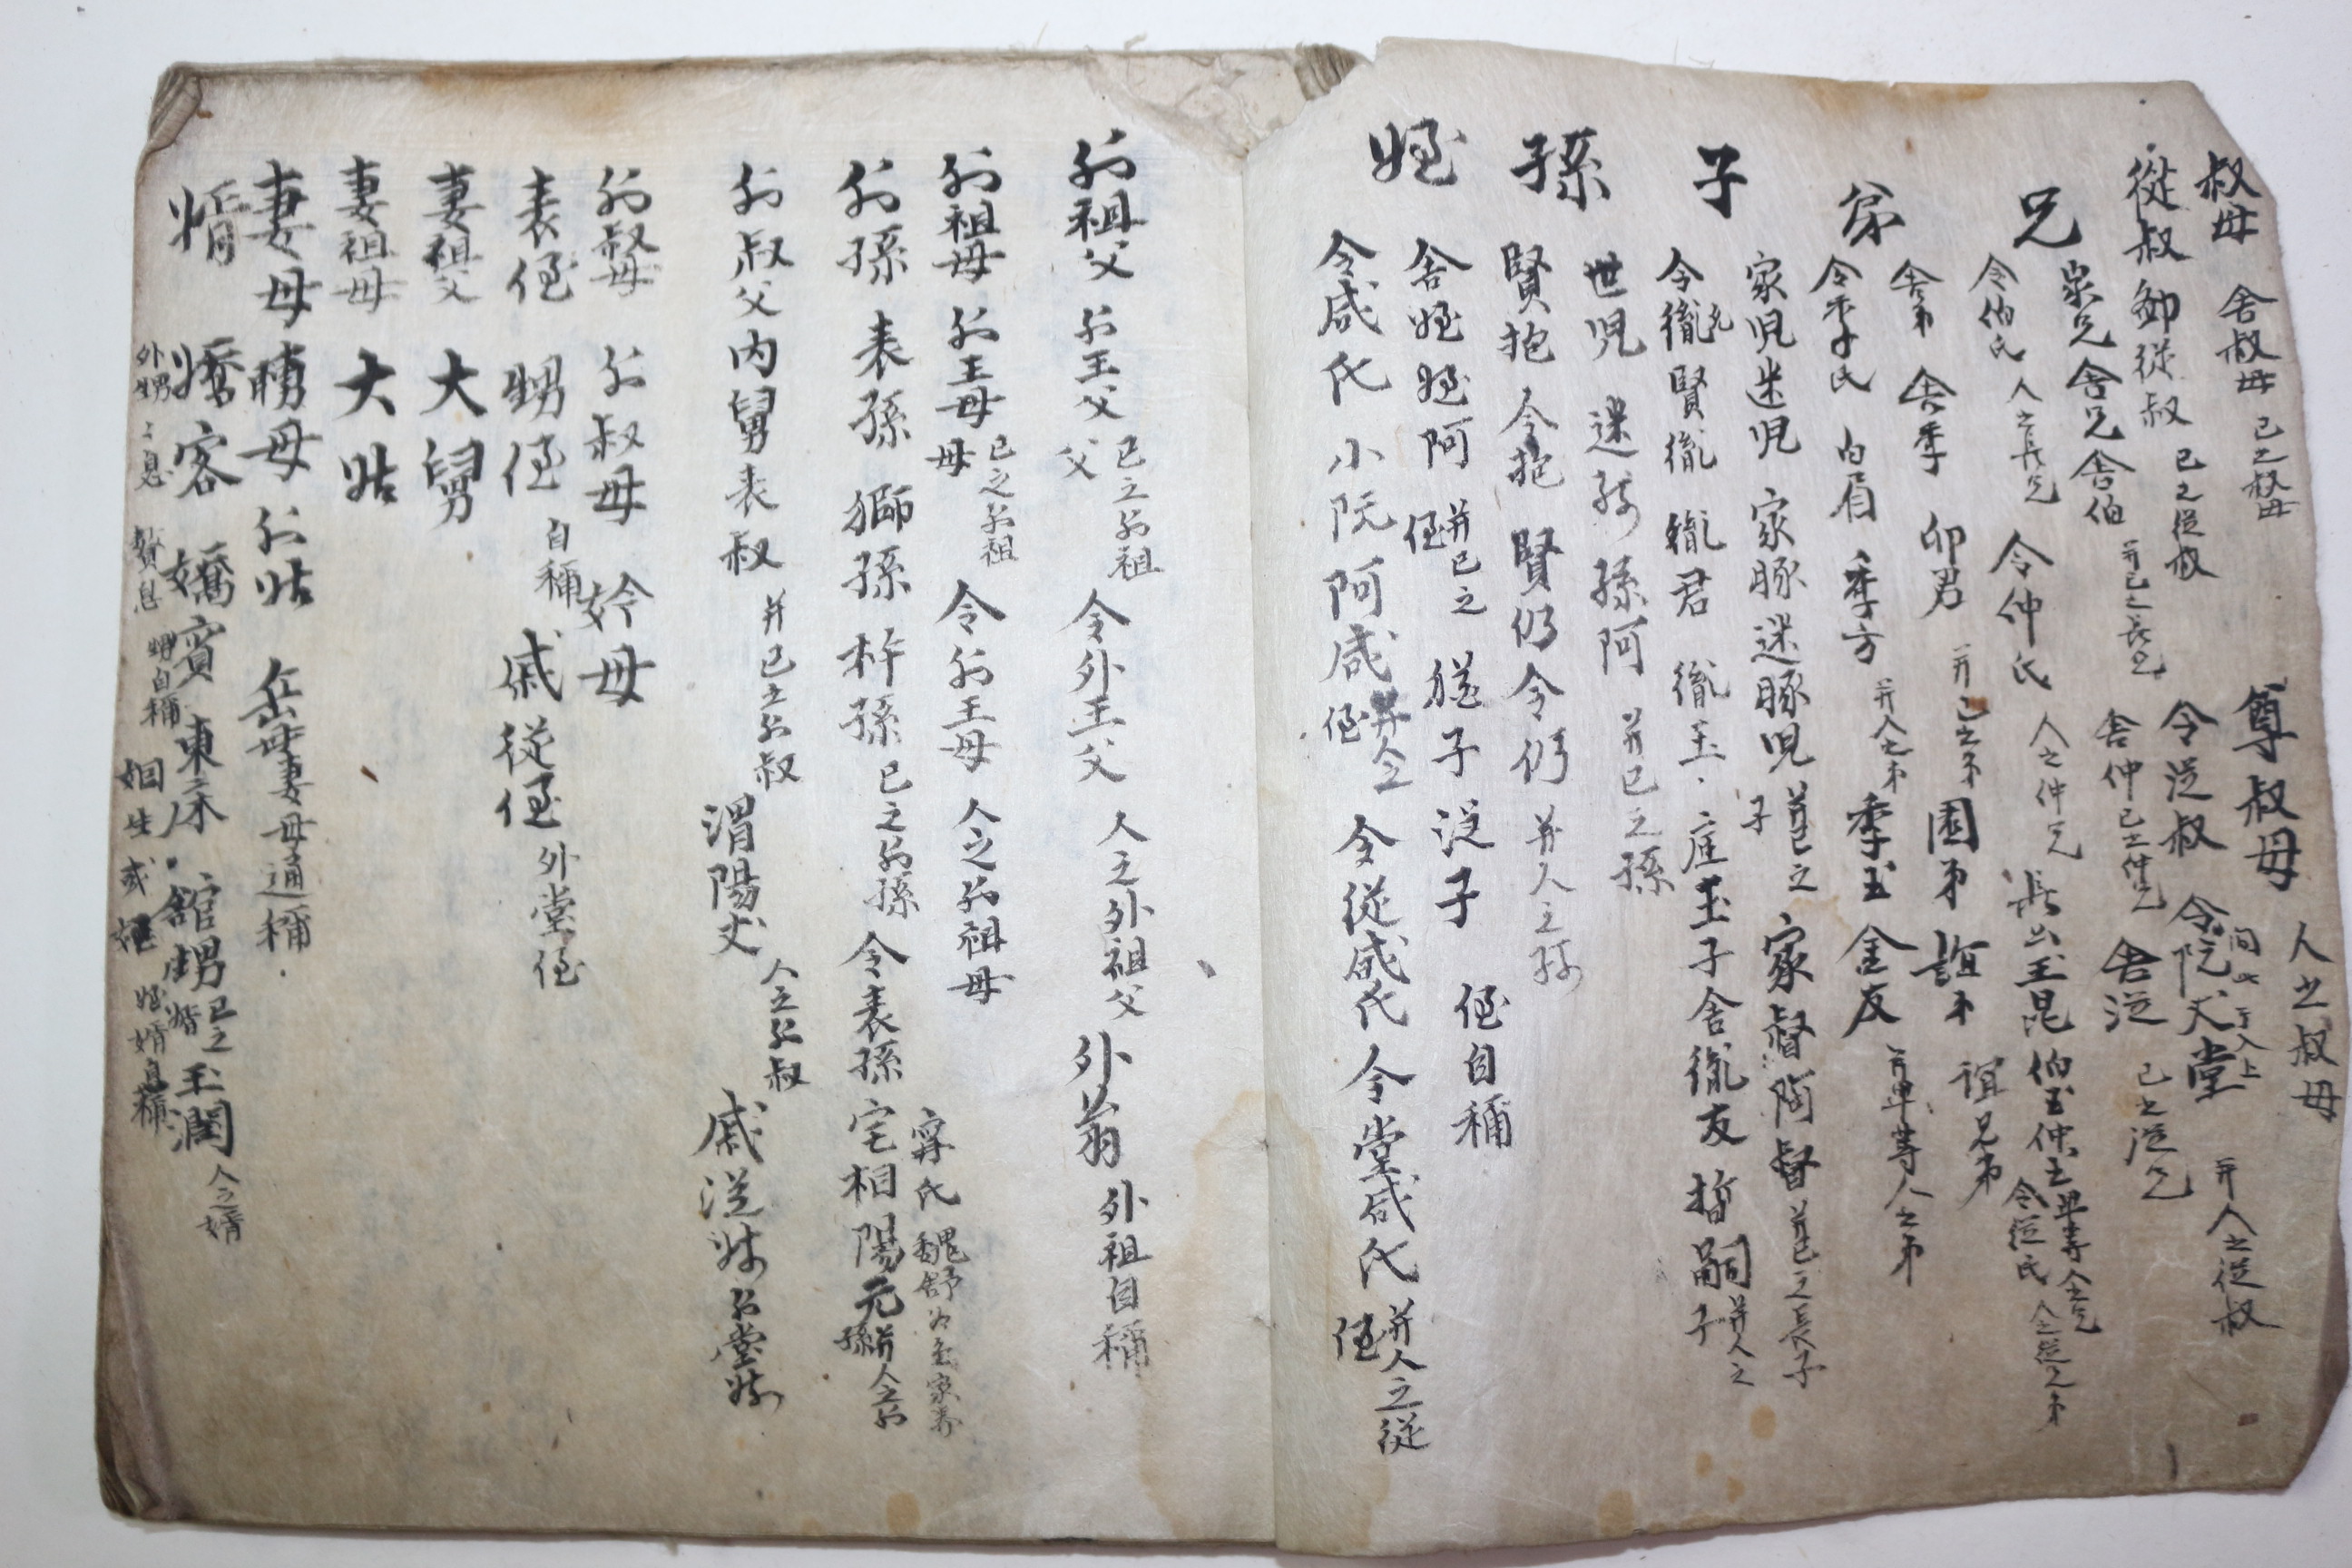 叔母 舍叔母 己之叔母 尊叔母 人之叔母
從叔 鄙從叔 己之從叔 令從叔 令阮丈 堂 并人之從叔
兄 家兄 舍兄 舍伯 并己之長兄 舍仲 己之仲兄 舍從 己之從兄
令伯氏 人之長兄 令仲氏 人之仲兄 長公 玉昆 伯玉 仲玉 并人之兄 令從氏 人之從兄弟
弟 舍弟 舍季 卯男 并己之弟 園弟 誼弟 誼兄弟
令季氏 白眉 季方 并人之弟 季玉 金友 人之弟
子 家兒 迷兒 家豚 迷豚兒 并己之子 家督 阿督 并己之長子
令胤 賢胤 胤君 胤玉 庭玉 子舍 胤友 哲嗣 并人之子
孫 世兒 迷孫 孫阿 并己之孫
賢抱 令抱 賢仍 令仍 并人之孫
姪 舍姪 姪阿 并己之侄 猶子 從子 侄自稱
令咸氏 小阮 阿咸 并人之侄 令從咸氏 令堂咸氏 并人之從侄
外祖父 外王父 己之外祖父 令外王父 人之外祖父 外翁 外祖自稱
外祖母 外王母 己之外祖母 令外王母 人之外祖母
外孫 表孫 獅孫 杵孫 己之外孫 令表孫 宅相 陽元 并人之外孫 甯氏 魏舒
外叔父 內舅 表叔 并己之外叔 渭陽丈 人之外叔 戚從
外叔母 外叔母 妗母
表侄 甥侄 自稱 戚從侄 外堂侄
妻祖父 大舅
妻祖母 大姑
妻母 聘母 外姑 岳母 妻母通稱
婿 嬌客 嬌賓 東床 館甥 己之婿 玉潤 人之婿
外甥 息 贅息 甥自稱 姻生 或